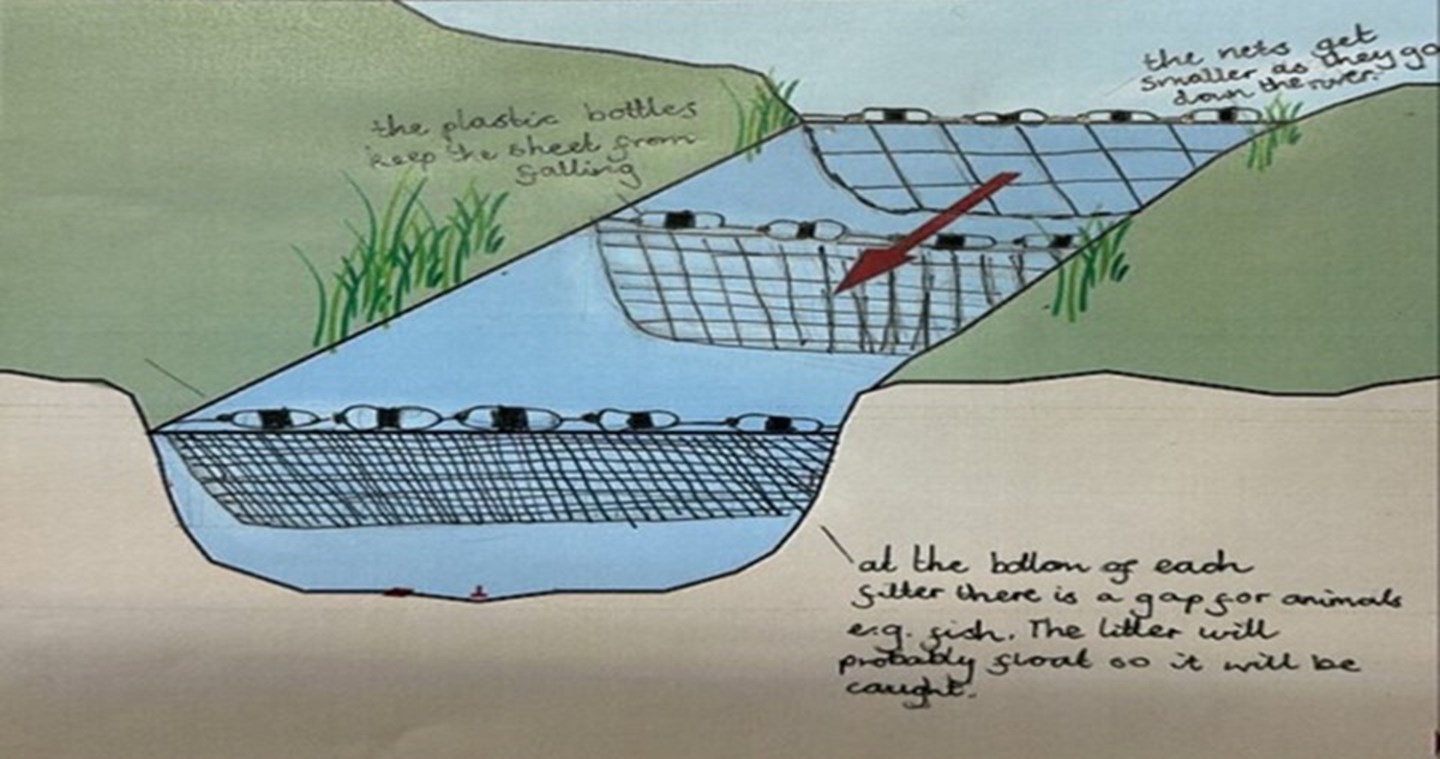 the nets get
smaller as they go
down the river.
the plastic bottles
keep the sheet from
falling
at the bottom of each
filter there is a gap for animals
e.g. fish. The litter will
probably float so it will be
caught.